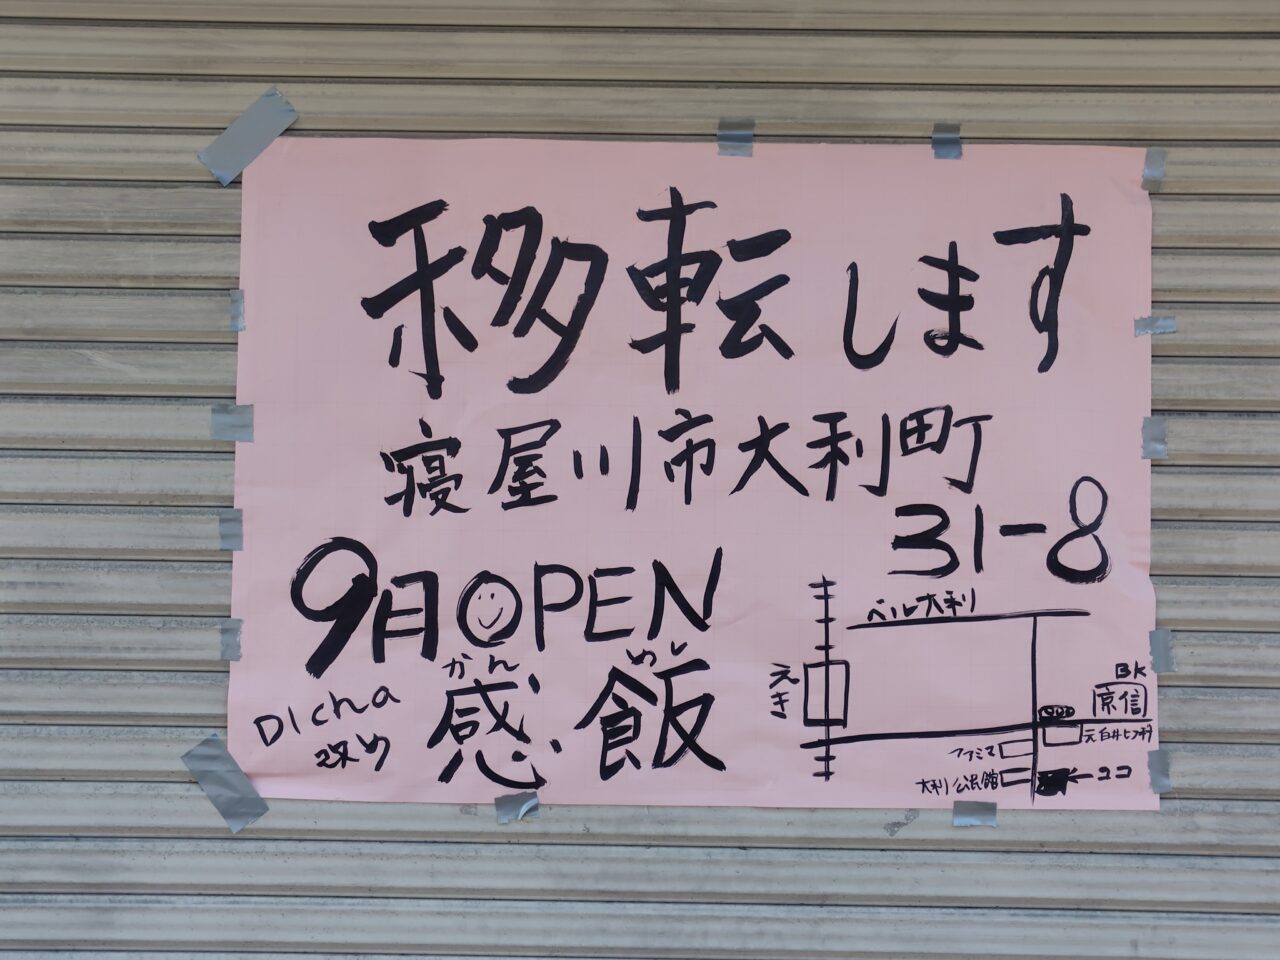 移転します
寝屋川市大利町
31-8
9月OPEN
かん めし
Dicha
改め
感飯
ベル大利
えき
BK
京信
元白井ヒフ科
ファミマ
大利公民館
ココ